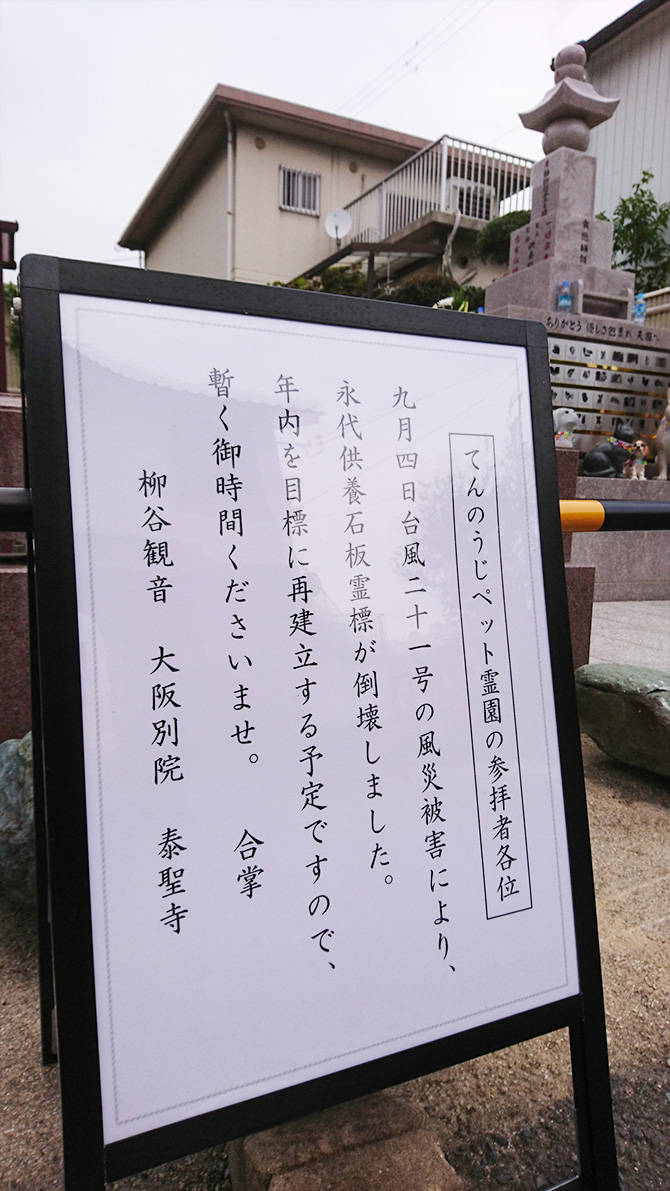 てんのうじペット霊園の参拝者各位
九月四日台風二十一号の風災被害により、
永代供養石板霊標が倒壊しました。
年内を目標に再建立する予定ですので、
暫く御時間くださいませ。 合掌
柳谷観音 大阪別院 泰聖寺
ありがとう 優しさ包まれ 天国へ